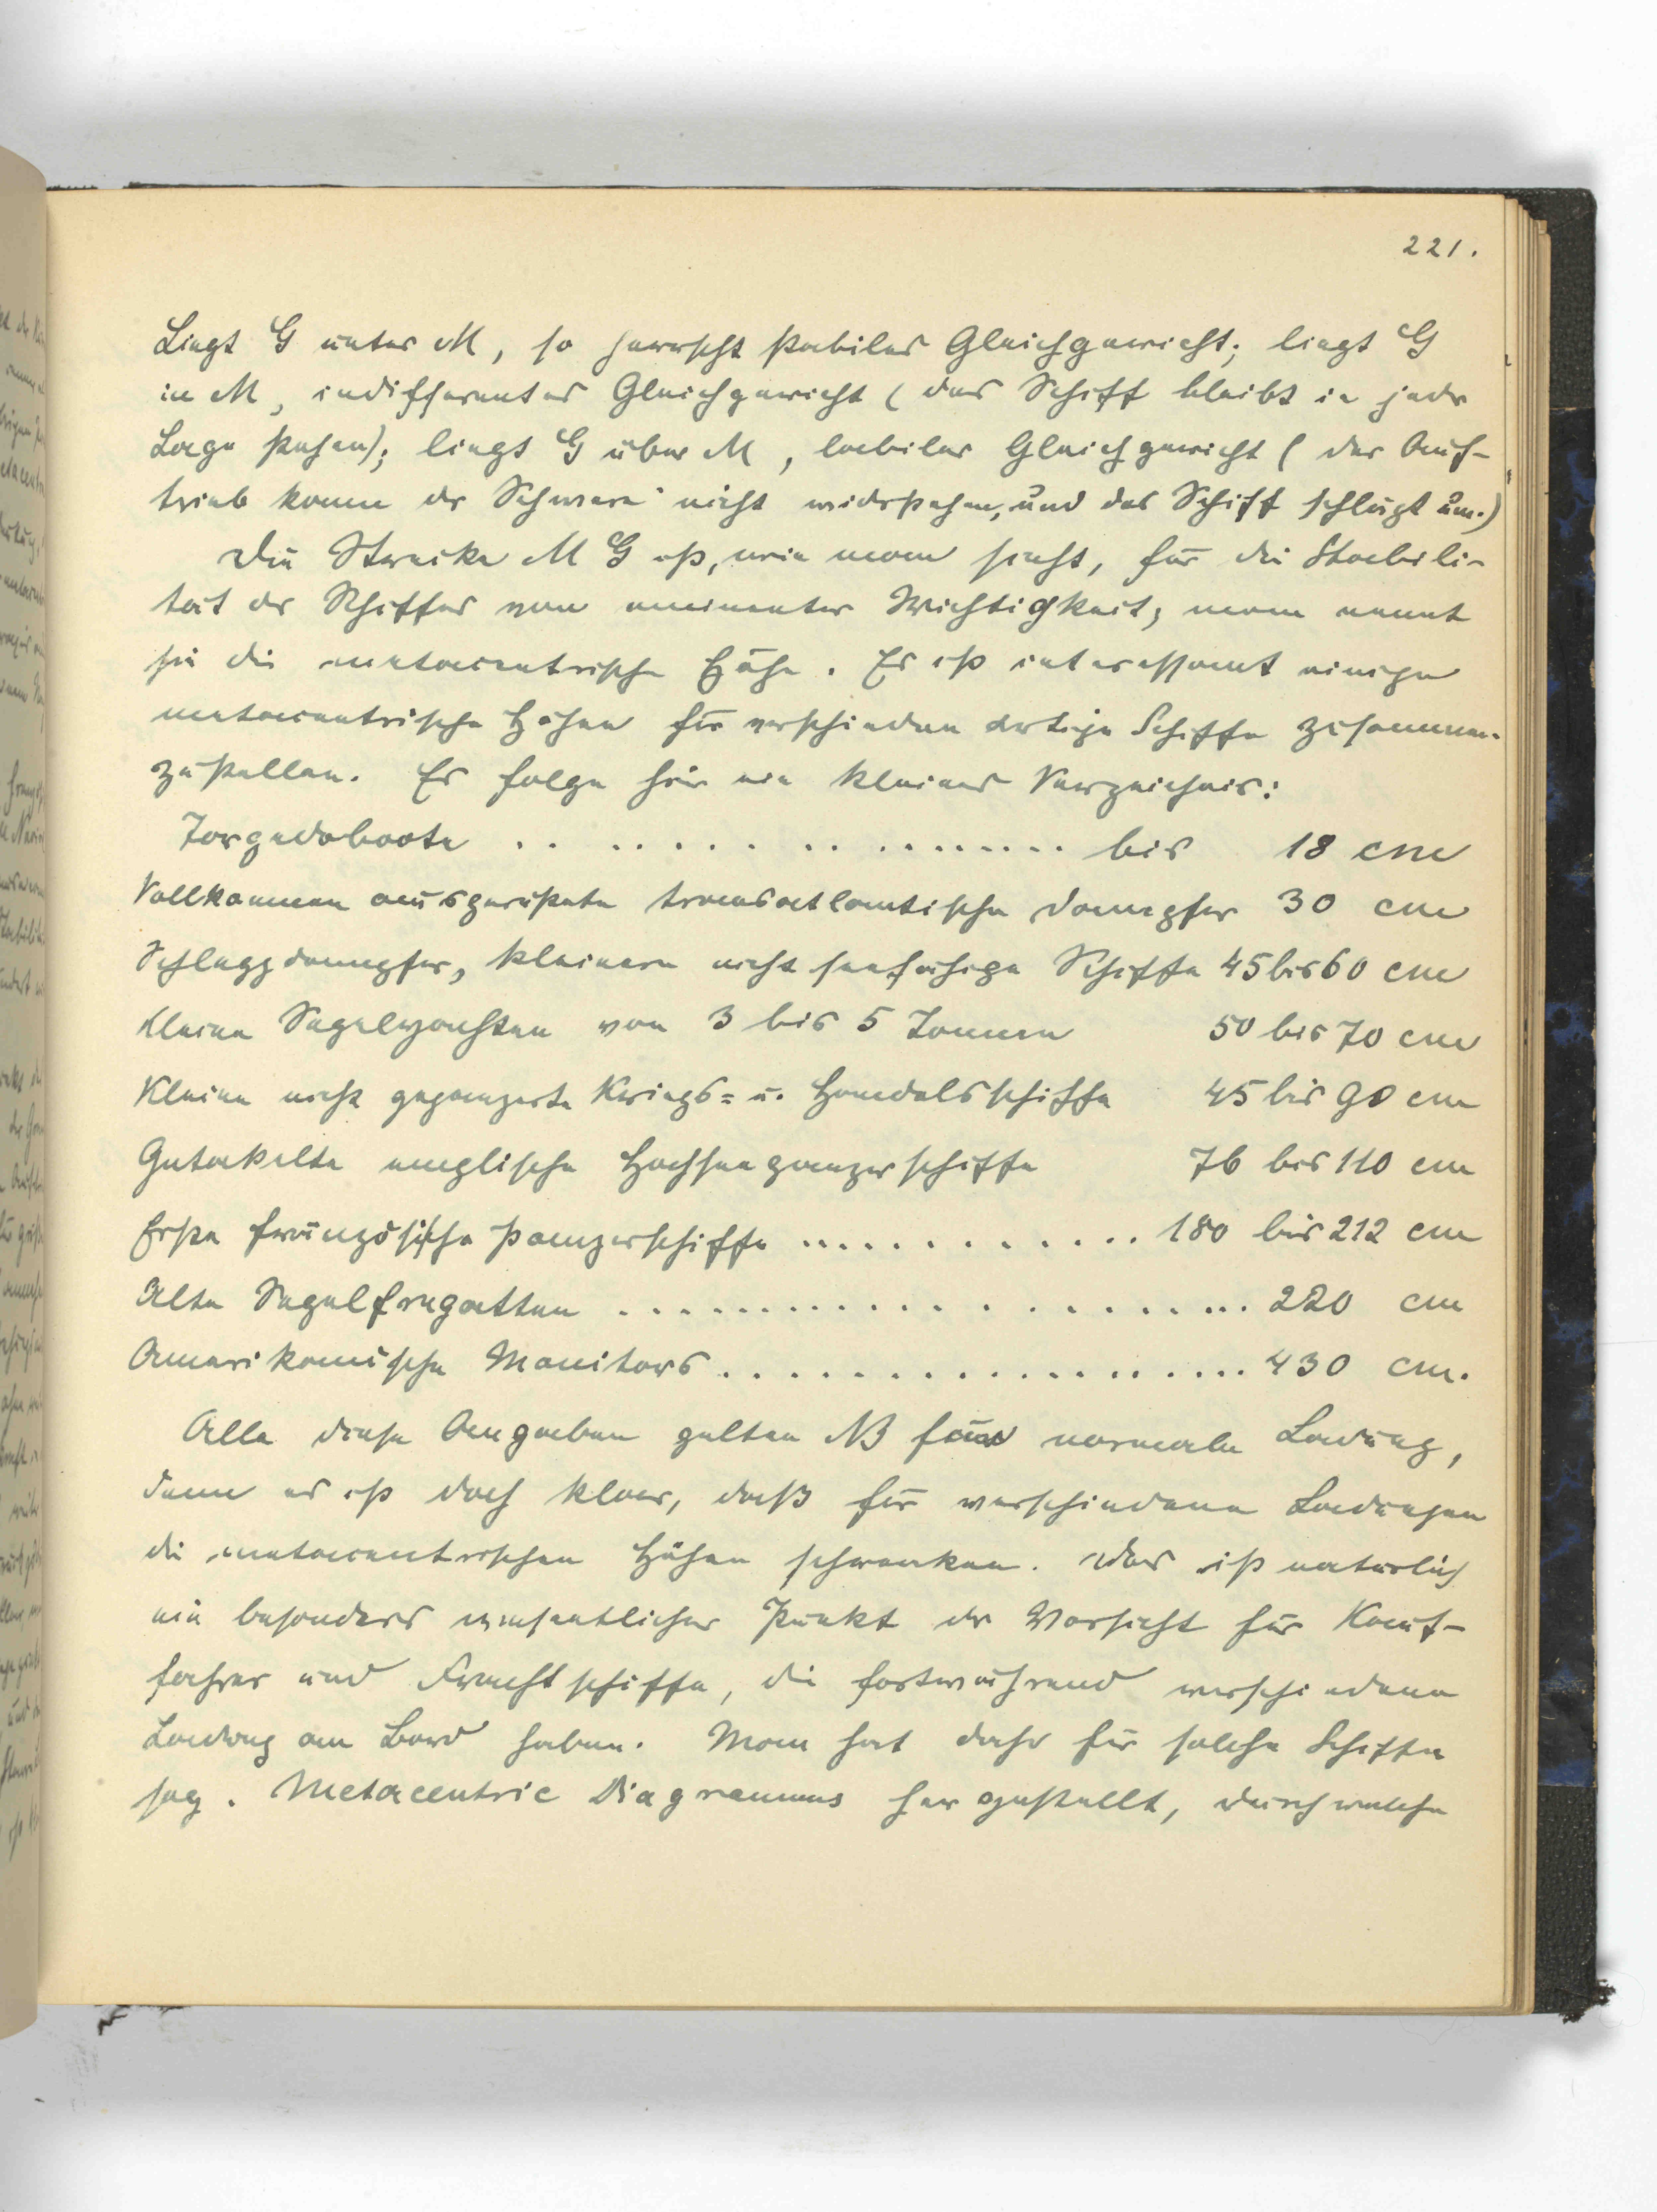 221.
Liegt G unter M, so herrscht stabiles Gleichgewicht; liegt G
in M, indifferentes Gleichgewicht (das Schiff bleibt in jeder
Lage stehen); liegt G über M, labiles Gleichgewicht (der Auf-
trieb kann der Schwere nicht widerstehen, und das Schiff schlägt um.)
Die Strecke M G ist, wie man sieht, für die Stabili-
tät der Schiffes von eminenter Wichtigkeit; man nennt
sie die metacentrische Höhe. Es ist interessant einige
metacentrische Höhen für verschieden artige Schiffe zusammen-
zustellen. Es folge hier ein kleines Verzeichnis:
Torpedoboote .. ..... .. ........ bis 18 cm
Vollkommen ausgerüstete transatlantische Dampfer 30 cm
Schleppdampfer, kleinere nicht seefähige Schiffe 45 bis 60 cm
Kleine Segelyachten von 3 bis 5 Tonnen 50 bis 70 cm
Kleine nicht gepanzerte Kriegs= u. Handelsschiffe 45 bis 90 cm
Getakelte englische Hochseepanzerschiffe 76 bis 110 cm
Erste französische Panzerschiffe .............. 180 bis 212 cm
Alte Segelfregatten ...................... 220 cm
Amerikanische Monitors .................... 430 cm.
Alle diese Angaben gelten NB für normale Ladung,
denn es ist doch klar, daß für verschiedene Ladungen
die metacentrischen Höhen schwanken. Das ist natürlich
ein besonders wesentlicher Punkt der Vorsicht für Kauf-
fahrer und Frachtschiffe, die fortwährend verschiedene
Ladung am Bord haben. Man hat daher für solche Schiffe
sog. Metacentric Diagramms hergestellt, durch welche